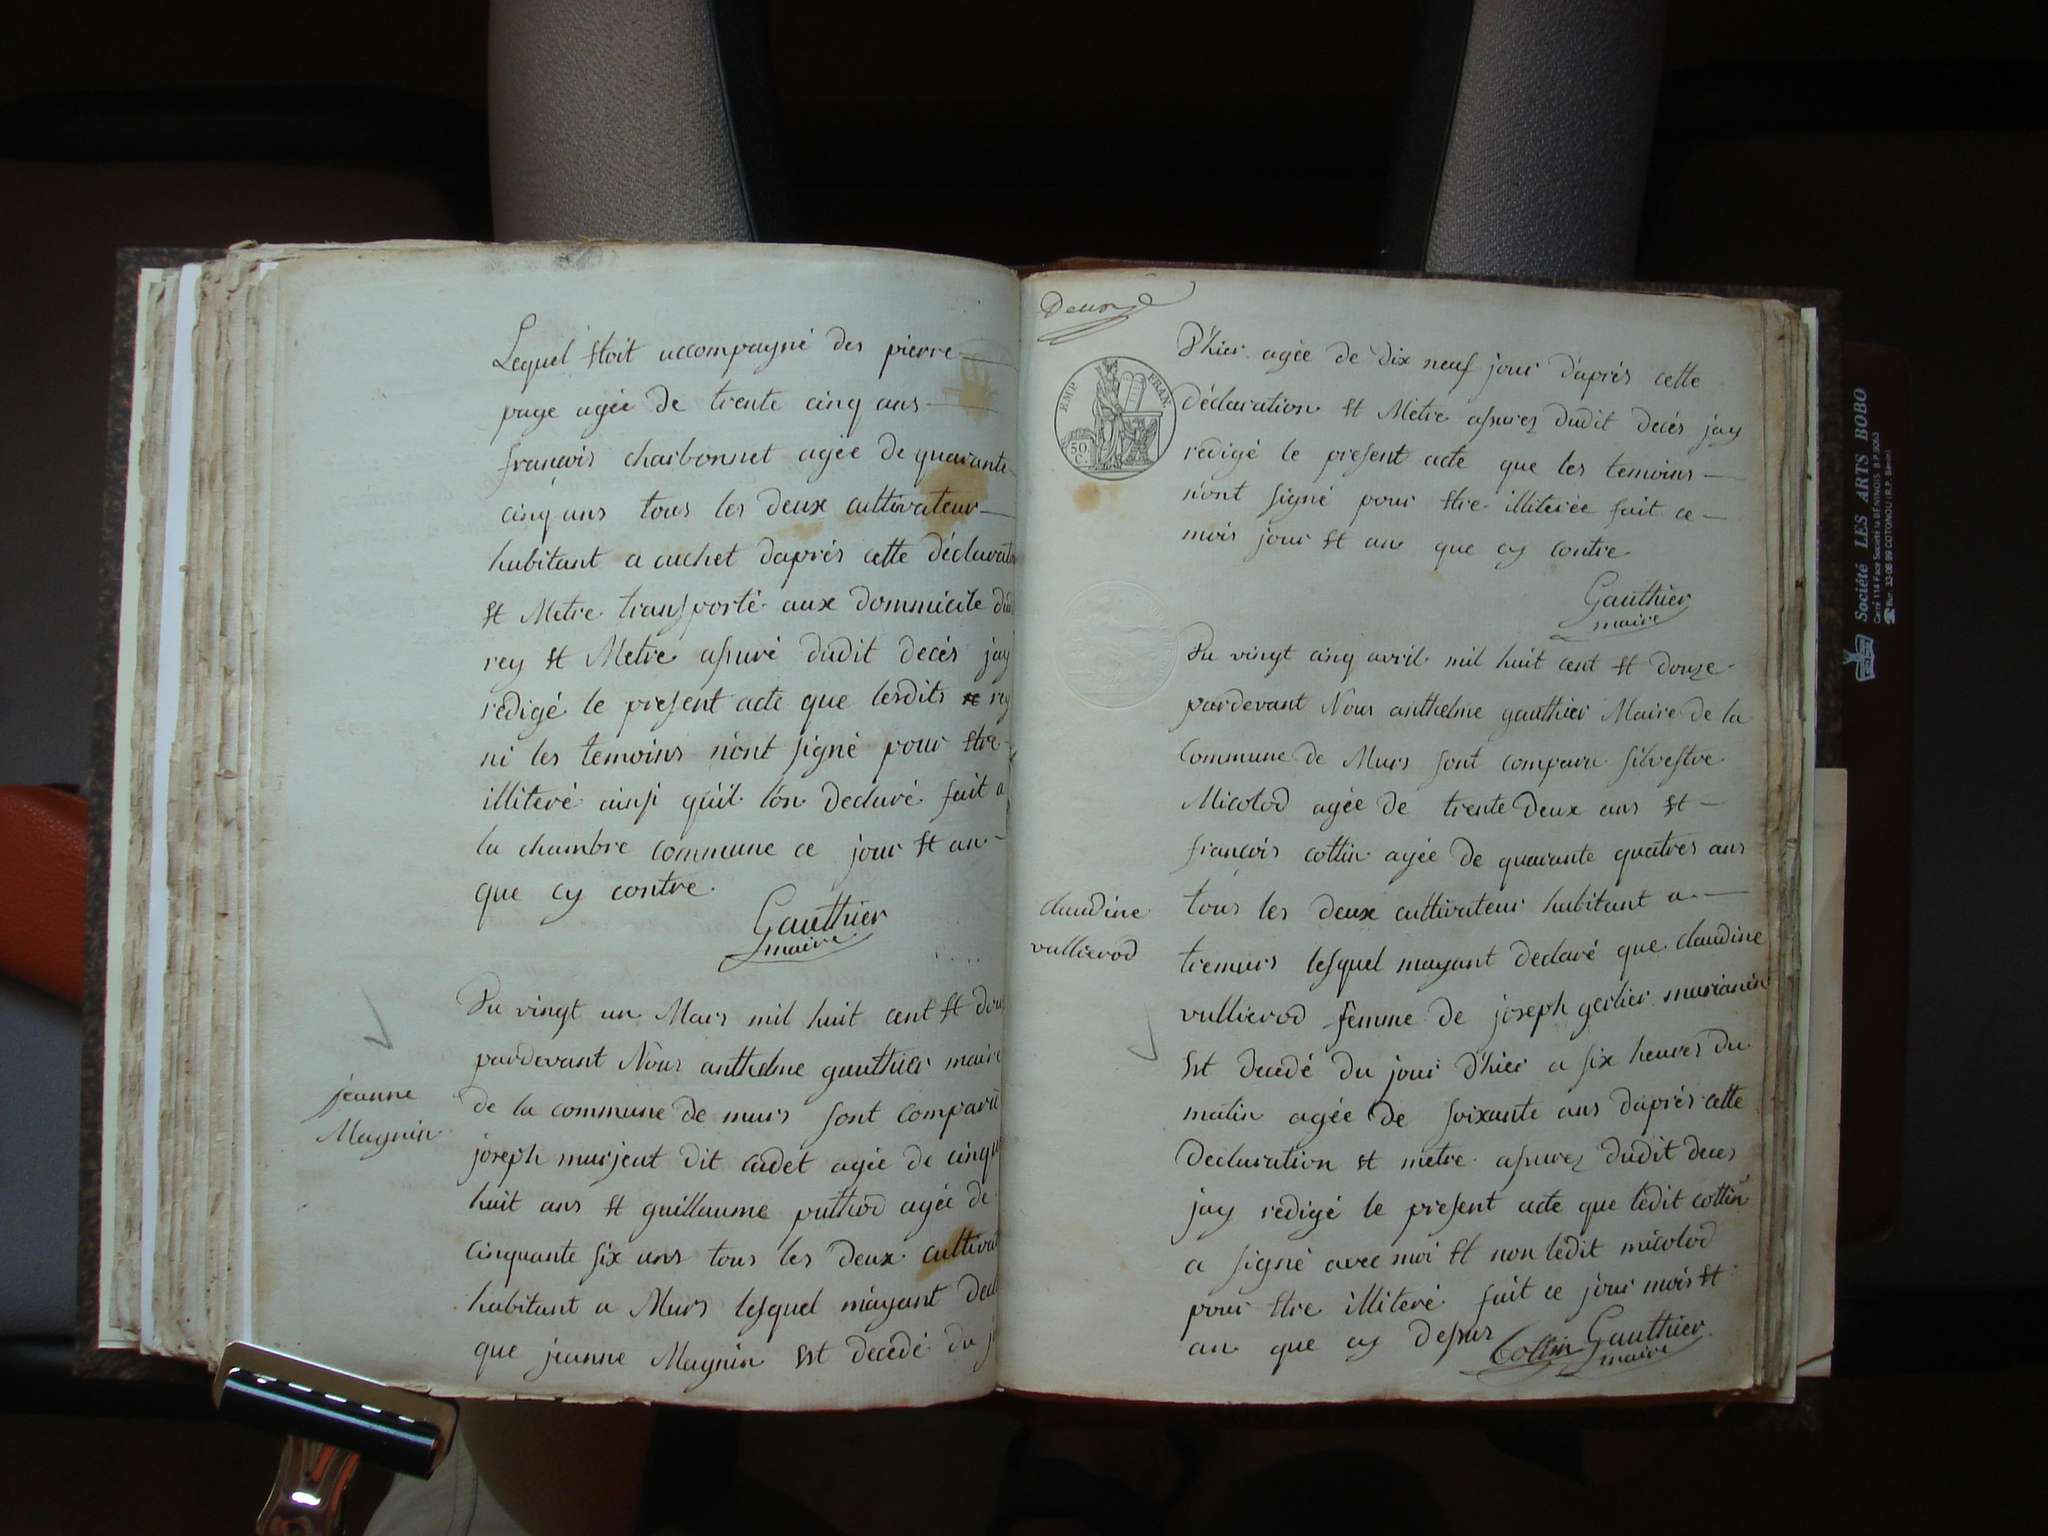 Lequel Etoit accompagné des pierre
page agée de trente cinq ans
françois charbonnet agée de quarante
cinq ans tous les deux cultivateur
habitant a cuchet daprés cette déclarat
Et Metre transporté aux dommicile dud
rey Et Metre assuré dudit decés jay
rédigé le present acte que lesdits rey
ni les temoins n'ont signé pour Etre
illiteré ainsi qu'il l'on declaré fait a
la chambre commune ce jour Et an
que cy contre.
Gauthier
maire
Du vingt un Mars mil huit cent Et dou
pardevant Nous anthelme gauthier maire
jeanne
Magnin
de la commune de murs sont comparu
joseph murjeat dit cadet agée de cinqu
huit ans Et guillaume puthod agée de
cinquante six ans tous les deux cultivat
habitant a Murs lesquel m'ayant decl
que jeanne Magnin Est decedé du j
D'hier agée de dix neuf jour d'aprés cette
EMP. FRAN.
50
C.
déclaration Et Metre assurez dudit decés jay
redigé le present acte que les temoins
n'ont signé pour Etre illiterée fait ce
mois jour Et an que cy contre
Gauthier
maire
Du vingt cinq avril mil huit cent Et douze
pardevant Nous anthelme gauthier Maire de la
Commune de Murs sont comparu silvestre
Micolod agée de trente deux ans Et
françois cottin agée de quarante quatres ans
claudine
vullierod
tous les deux cultivateur habitant a
tremurs lesquel mayant declaré que claudine
vullierod femme de joseph gerlier
Est decedé du jour d'hier a six heures du
matin agée de soixante ans daprés cette
Declaration Et metre assurez dudit deces
jay rédigé le present acte que ledit cottin
a signé avec moi Et non ledit micolod
pour Etre illiteré fait ce jour mois Et
an que cy dessus
Cottin Gauthier
maire
Société LES ARTS BOBO